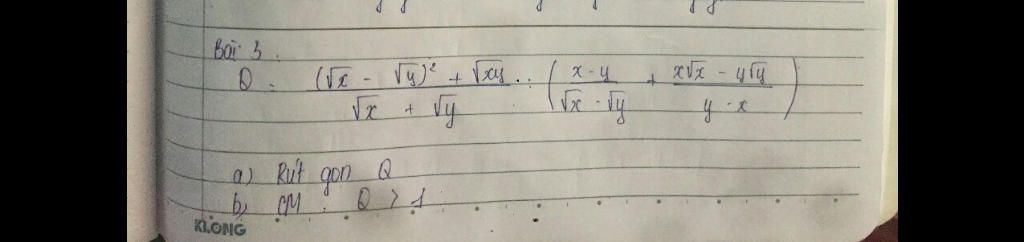 Bài 3.
Q = (√x - √y)² + √xy / √x + √y : ( x - y / √x - √y + x√x - y√y / y - x )
a) Rút gọn Q
b, CM : Q > 1
KLONG